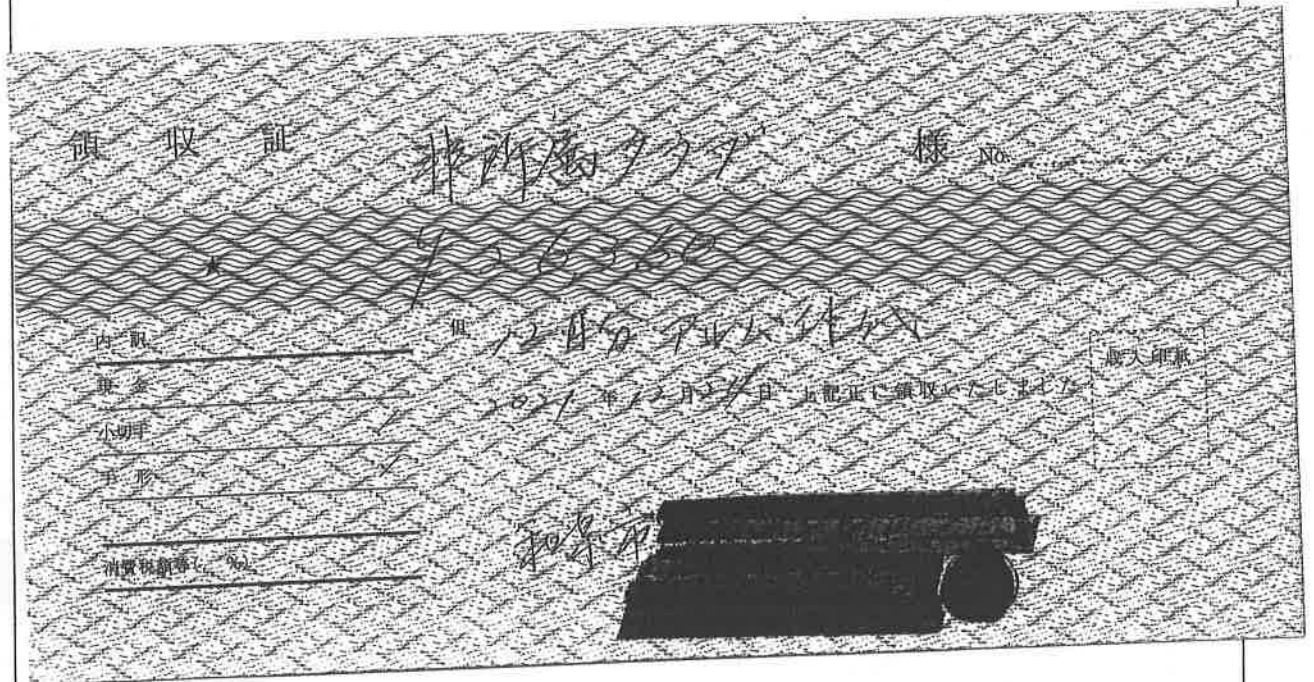 領 収 証 非所属クラブ 様 No.
★
内 訳 但 12月分 アルバイト代
現 金
2021年12月24日 上記正に領収いたしました
収入印紙
小切手
手 形
消費税額等( %)
和泉市